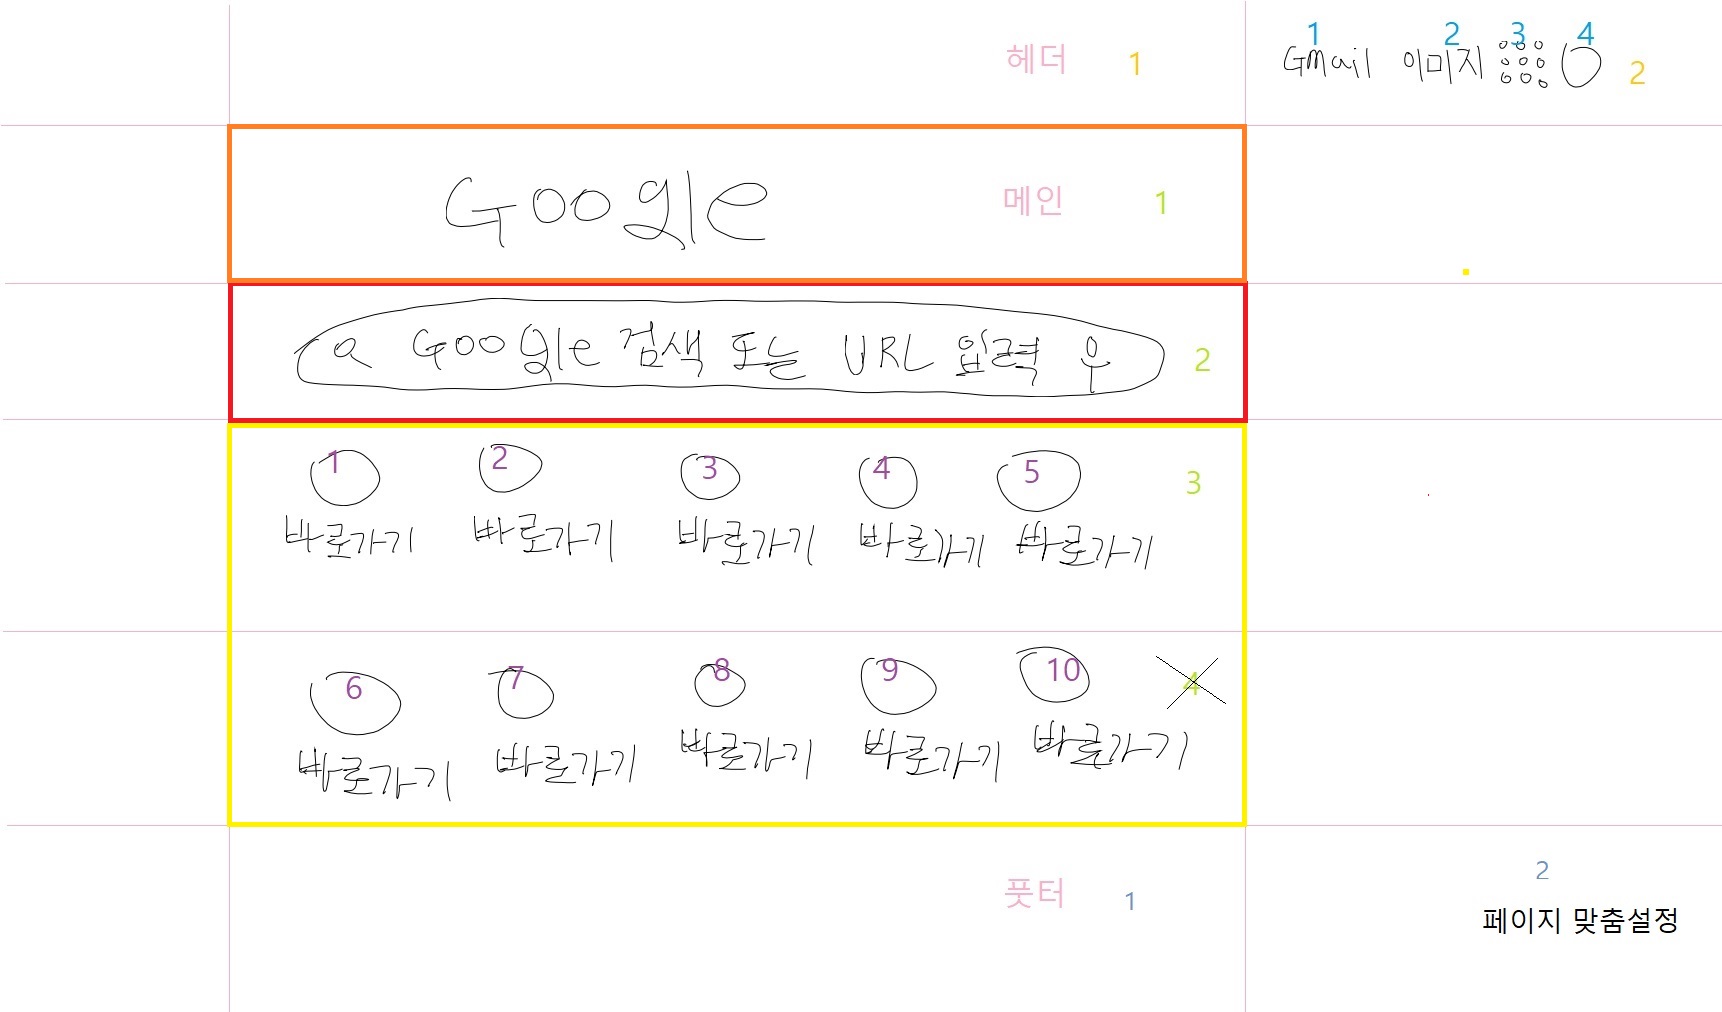 헤더 1
1 2 3 4
Gmail 이미지 2
Google 메인 1
Google 검색 또는 URL 입력 2
1 2 3 4 5 3
바로가기 바로가기 바로가기 바로가기 바로가기
6 7 8 9 10 4
바로가기 바로가기 바로가기 바로가기 바로가기
풋터 1
2
페이지 맞춤설정